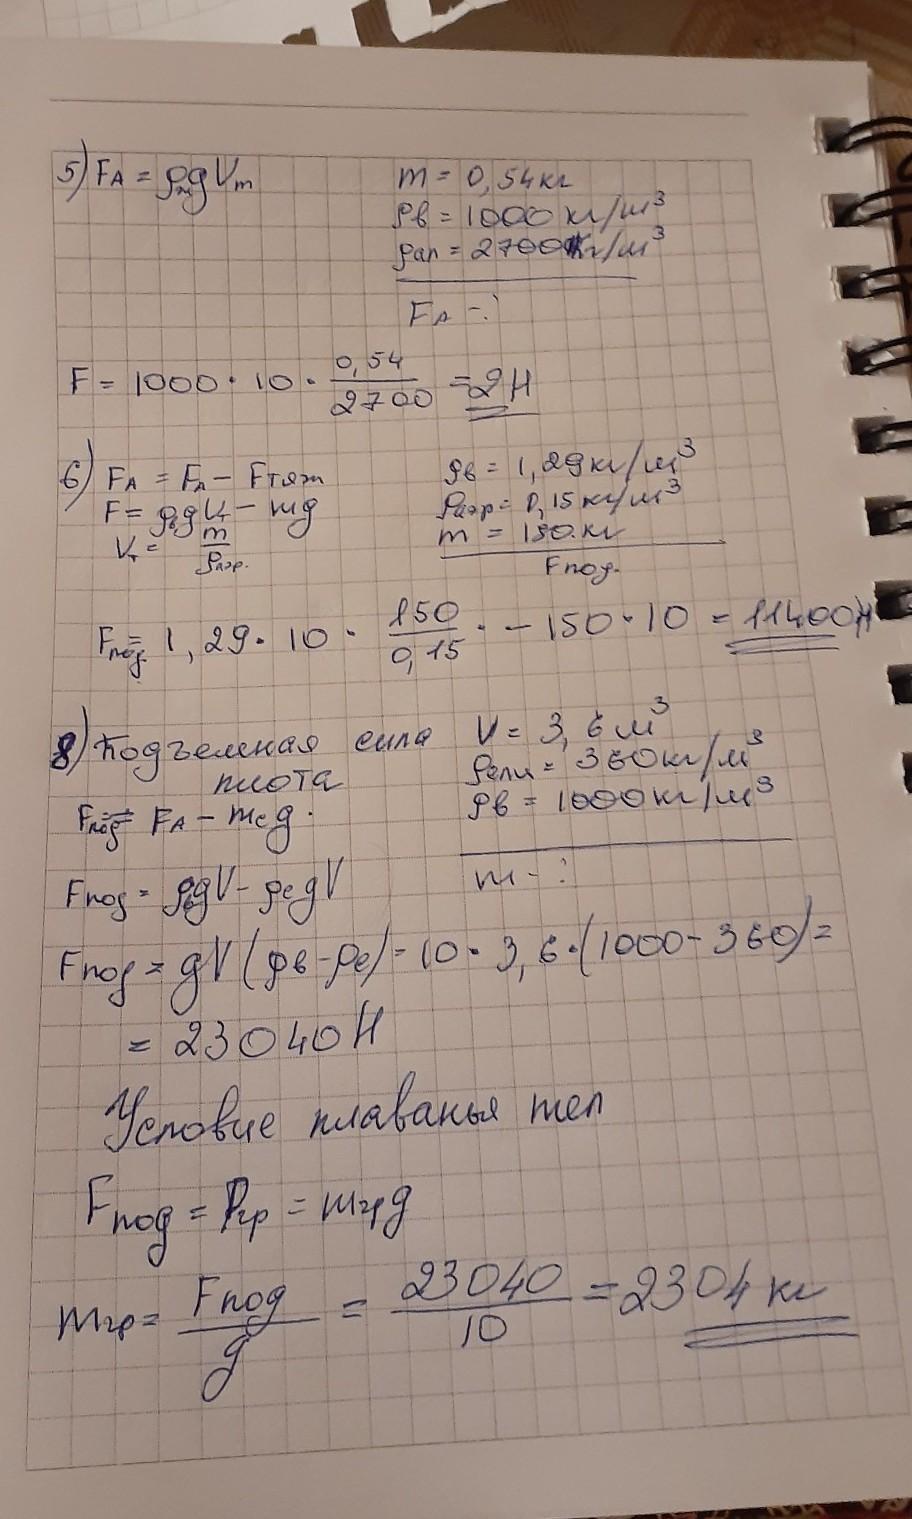 5) Fₐ = ρₘgVₘ
m = 0,54 кг
ρв = 1000 кг/м³
ρал = 2700 кг/м³
Fₐ - ?
F = 1000 · 10 · 0,54/2700 = 2Н
6) Fₐ = Fₐ - Fтяж
F = ρgVт - mg
Vт = m/ρаэр.
ρв = 1,29 кг/м³
ρаэр = 0,15 кг/м³
m = 150 кг
Fпод.
Fпод. = 1,29 · 10 · 150/0,15 · - 150 · 10 = 11400Н
8) Подъемная сила
плота
V = 3,6 м³
ρели = 360 кг/м³
ρв = 1000 кг/м³
m - ?
Fпод = Fₐ - mсg.
Fпод = ρвgV - ρсgV
Fпод = gV(ρв - ρс) = 10 · 3,6 · (1000 - 360) =
= 23040Н
Условие плаванья тел
Fпод = Pгр = mгрg
mгр = Fпод/g = 23040/10 = 2304 кг